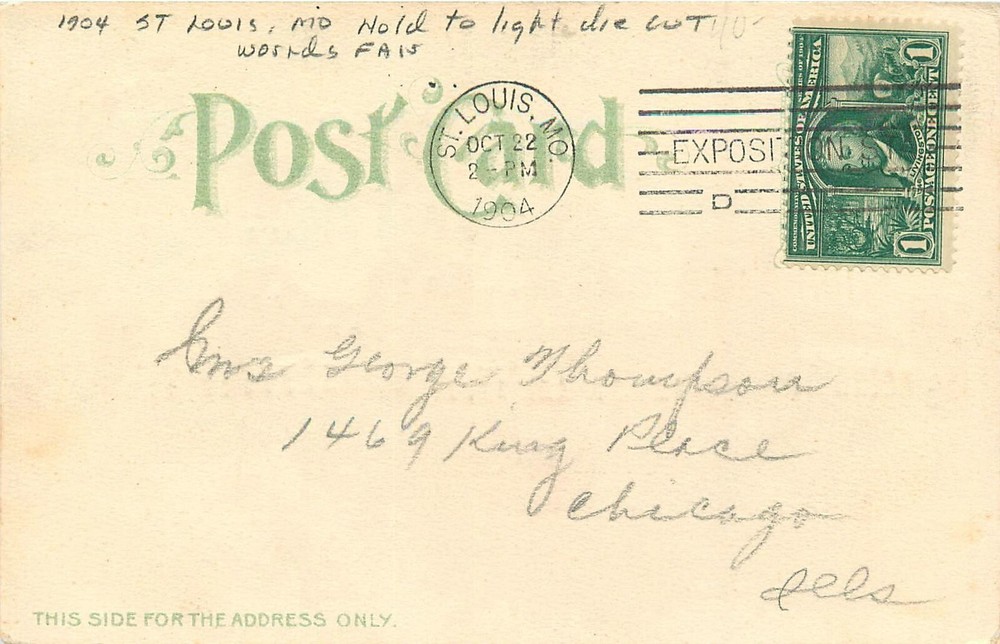 1904 ST LOUIS, MO Hold to light die CUT 40-
WORLDS FAIR
Post Card
ST. LOUIS, MO.
OCT 22
2-PM
1904
EXPOSITION
D
COMMEMORATIVE SERIES OF 1904
UNITED STATES OF AMERICA
LIVINGSTON
POSTAGE ONE CENT
1
1
Mrs George Thompson
1469 King Place
Chicago
Ills
THIS SIDE FOR THE ADDRESS ONLY.